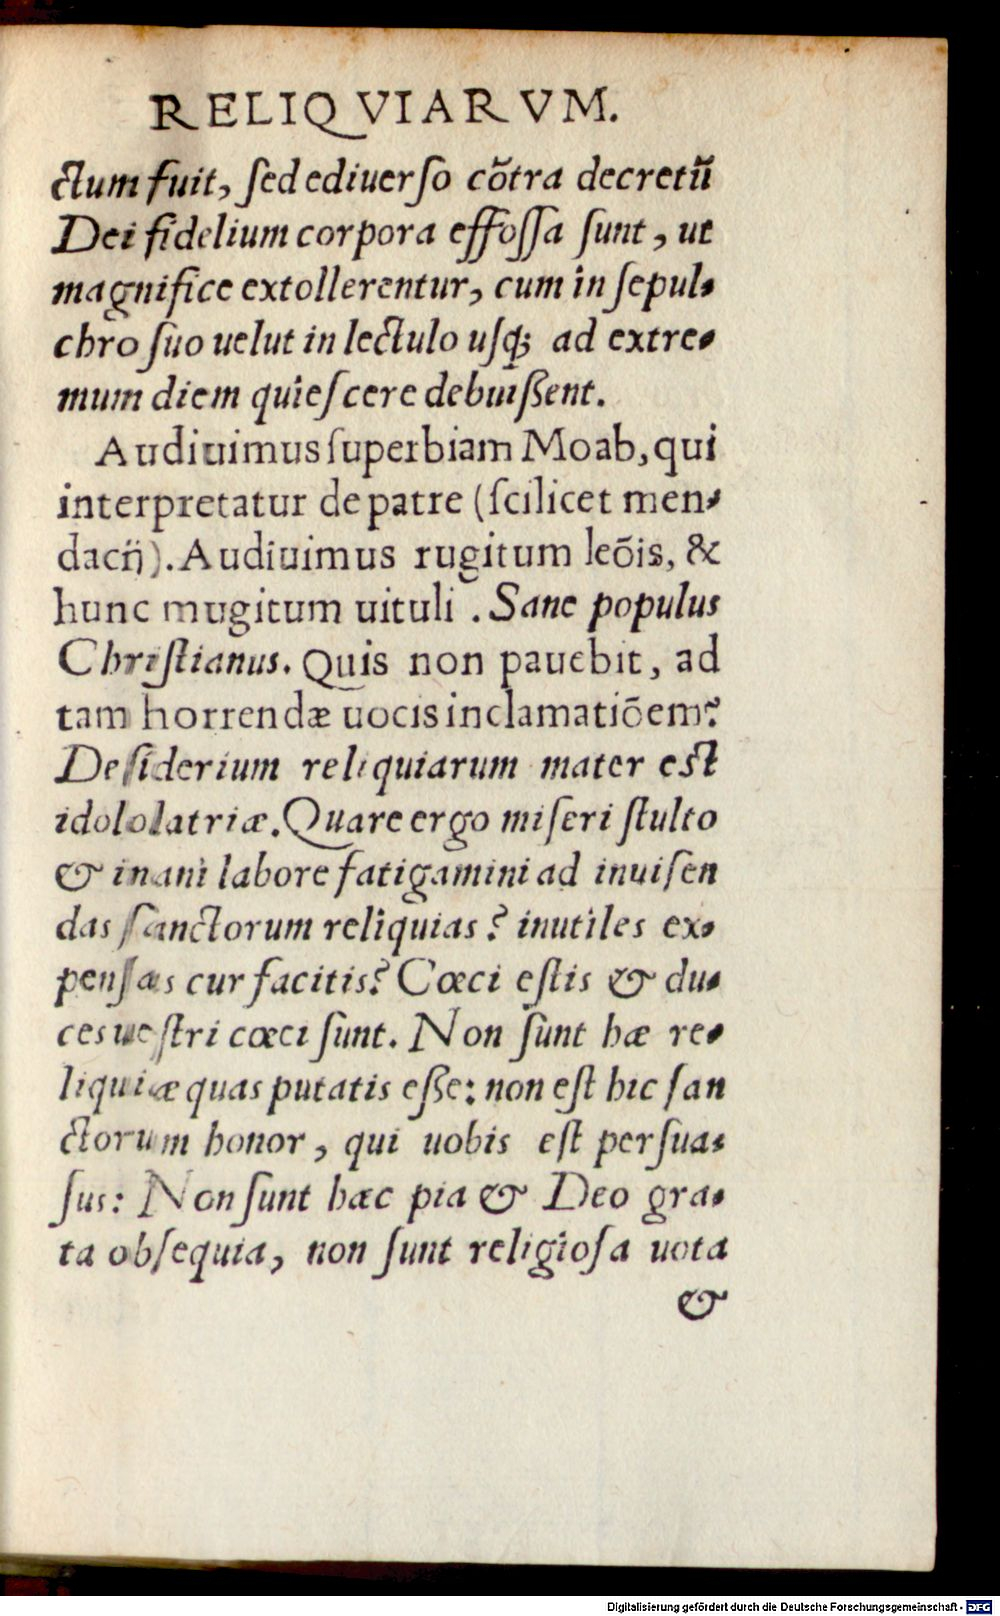 RELIQVIARVM.
ctum fuit, ſed ediuerſo cõtra decretũ
Dei fidelium corpora effoſſa ſunt, ut
magnifice extollerentur, cum in ſepul-
chro ſuo uelut in lectulo uſq; ad extre-
mum diem quieſcere debuißent.
Audiuimus ſuperbiam Moab, qui
interpretatur de patre (ſcilicet men-
dacij). Audiuimus rugitum leõis, &
hunc mugitum uituli. Sane populus
Chriſtianus. Quis non pauebit, ad
tam horrendæ uocis inclamatiõem?
Deſiderium reliquiarum mater eſt
idololatriæ. Quare ergo miſeri ſtulto
& inani labore fatigamini ad inuiſen
das ſanctorum reliquias? inutiles ex-
penſas cur facitis? Cœci eſtis & du-
ces ueſtri cœci ſunt. Non ſunt hæ re-
liquiæ quas putatis eße: non eſt hic ſan
ctorum honor, qui uobis eſt perſua-
ſus: Non ſunt hæc pia & Deo gra-
ta obſequia, non ſunt religioſa uota
&
Digitalisierung gefördert durch die Deutsche Forschungsgemeinschaft - DFG